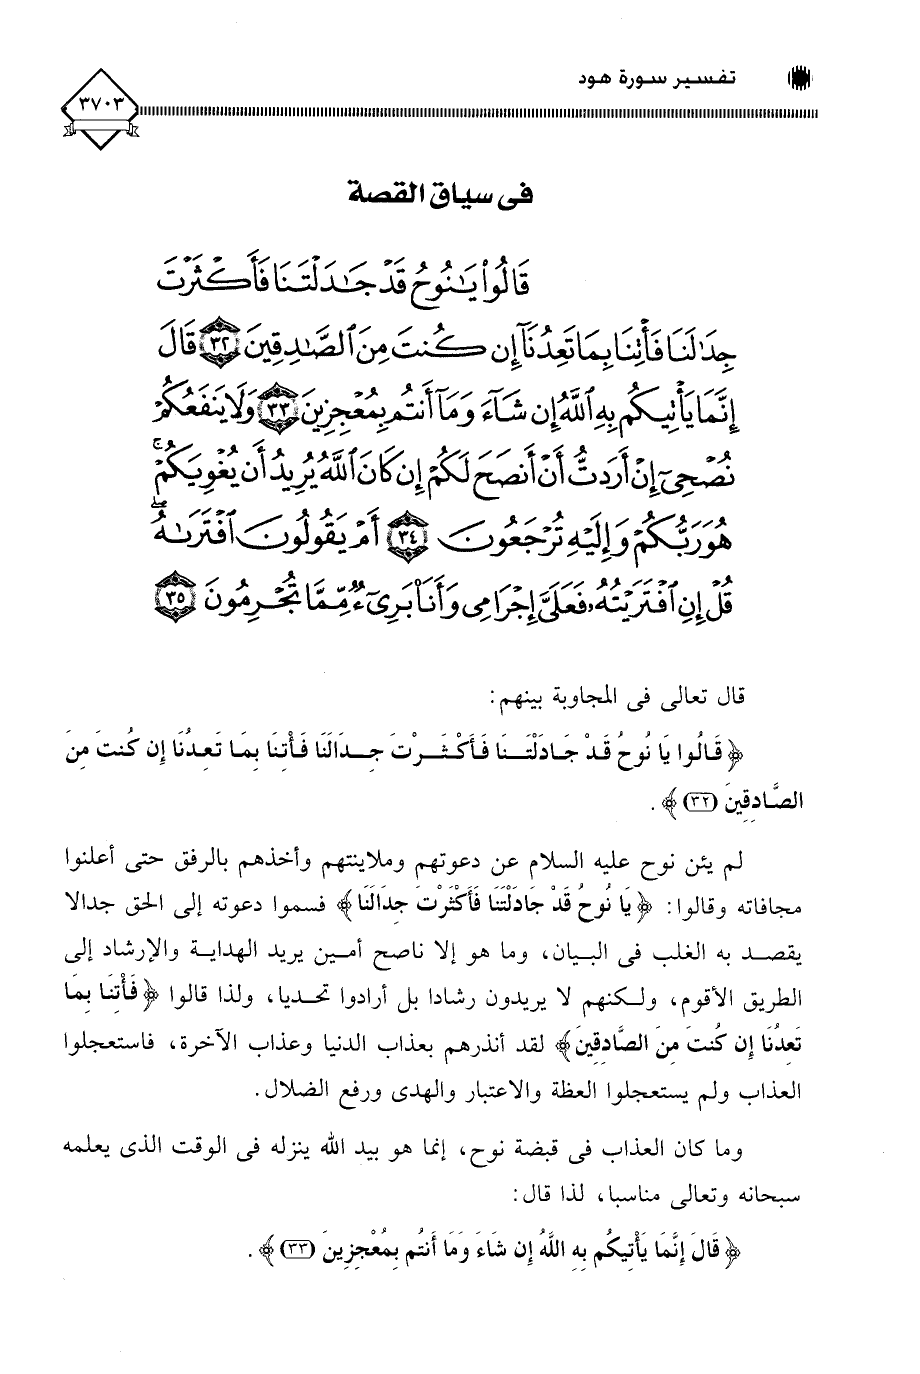 تفسير سورة هود
٣٧٠٣
فى سياق القصة
قَالُوا۟ يَـٰنُوحُ قَدْ جَـٰدَلْتَنَا فَأَكْثَرْتَ
جِدَٰلَنَا فَأْتِنَا بِمَا تَعِدُنَآ إِن كُنتَ مِنَ ٱلصَّـٰدِقِينَ ﴿٣٢﴾ قَالَ
إِنَّمَا يَأْتِيكُم بِهِ ٱللَّهُ إِن شَآءَ وَمَآ أَنتُم بِمُعْجِزِينَ ﴿٣٣﴾ وَلَا يَنفَعُكُمْ
نُصْحِىٓ إِنْ أَرَدتُّ أَنْ أَنصَحَ لَكُمْ إِن كَانَ ٱللَّهُ يُرِيدُ أَن يُغْوِيَكُمْ ۚ
هُوَ رَبُّكُمْ وَإِلَيْهِ تُرْجَعُونَ ﴿٣٤﴾ أَمْ يَقُولُونَ ٱفْتَرَىٰهُ ۖ
قُلْ إِنِ ٱفْتَرَيْتُهُۥ فَعَلَىَّ إِجْرَامِى وَأَنَا۠ بَرِىٓءٌ مِّمَّا تُجْرِمُونَ ﴿٣٥﴾
قال تعالى فى المجاوبة بينهم:
﴿قَالُوا يَا نُوحُ قَدْ جَادَلْتَنَا فَأَكْثَرْتَ جِدَالَنَا فَأْتِنَا بِمَا تَعِدُنَا إِن كُنتَ مِنَ
الصَّادِقِينَ (٣٢)﴾.
لم يئن نوح عليه السلام عن دعوتهم وملاينتهم وأخذهم بالرفق حتى أعلنوا
مجافاته وقالوا: ﴿يَا نُوحُ قَدْ جَادَلْتَنَا فَأَكْثَرْتَ جِدَالَنَا﴾ فسموا دعوته إلى الحق جدالا
يقصد به الغلب فى البيان، وما هو إلا ناصح أمين يريد الهداية والإرشاد إلى
الطريق الأقوم، ولكنهم لا يريدون رشادا بل أرادوا تحديا، ولذا قالوا ﴿فَأْتِنَا بِمَا
تَعِدُنَا إِن كُنتَ مِنَ الصَّادِقِينَ﴾ لقد أنذرهم بعذاب الدنيا وعذاب الآخرة، فاستعجلوا
العذاب ولم يستعجلوا العظة والاعتبار والهدى ورفع الضلال.
وما كان العذاب فى قبضة نوح، إنما هو بيد الله ينزله فى الوقت الذى يعلمه
سبحانه وتعالى مناسبا، لذا قال:
﴿قَالَ إِنَّمَا يَأْتِيكُم بِهِ اللَّهُ إِن شَاءَ وَمَا أَنتُم بِمُعْجِزِينَ (٣٣)﴾.